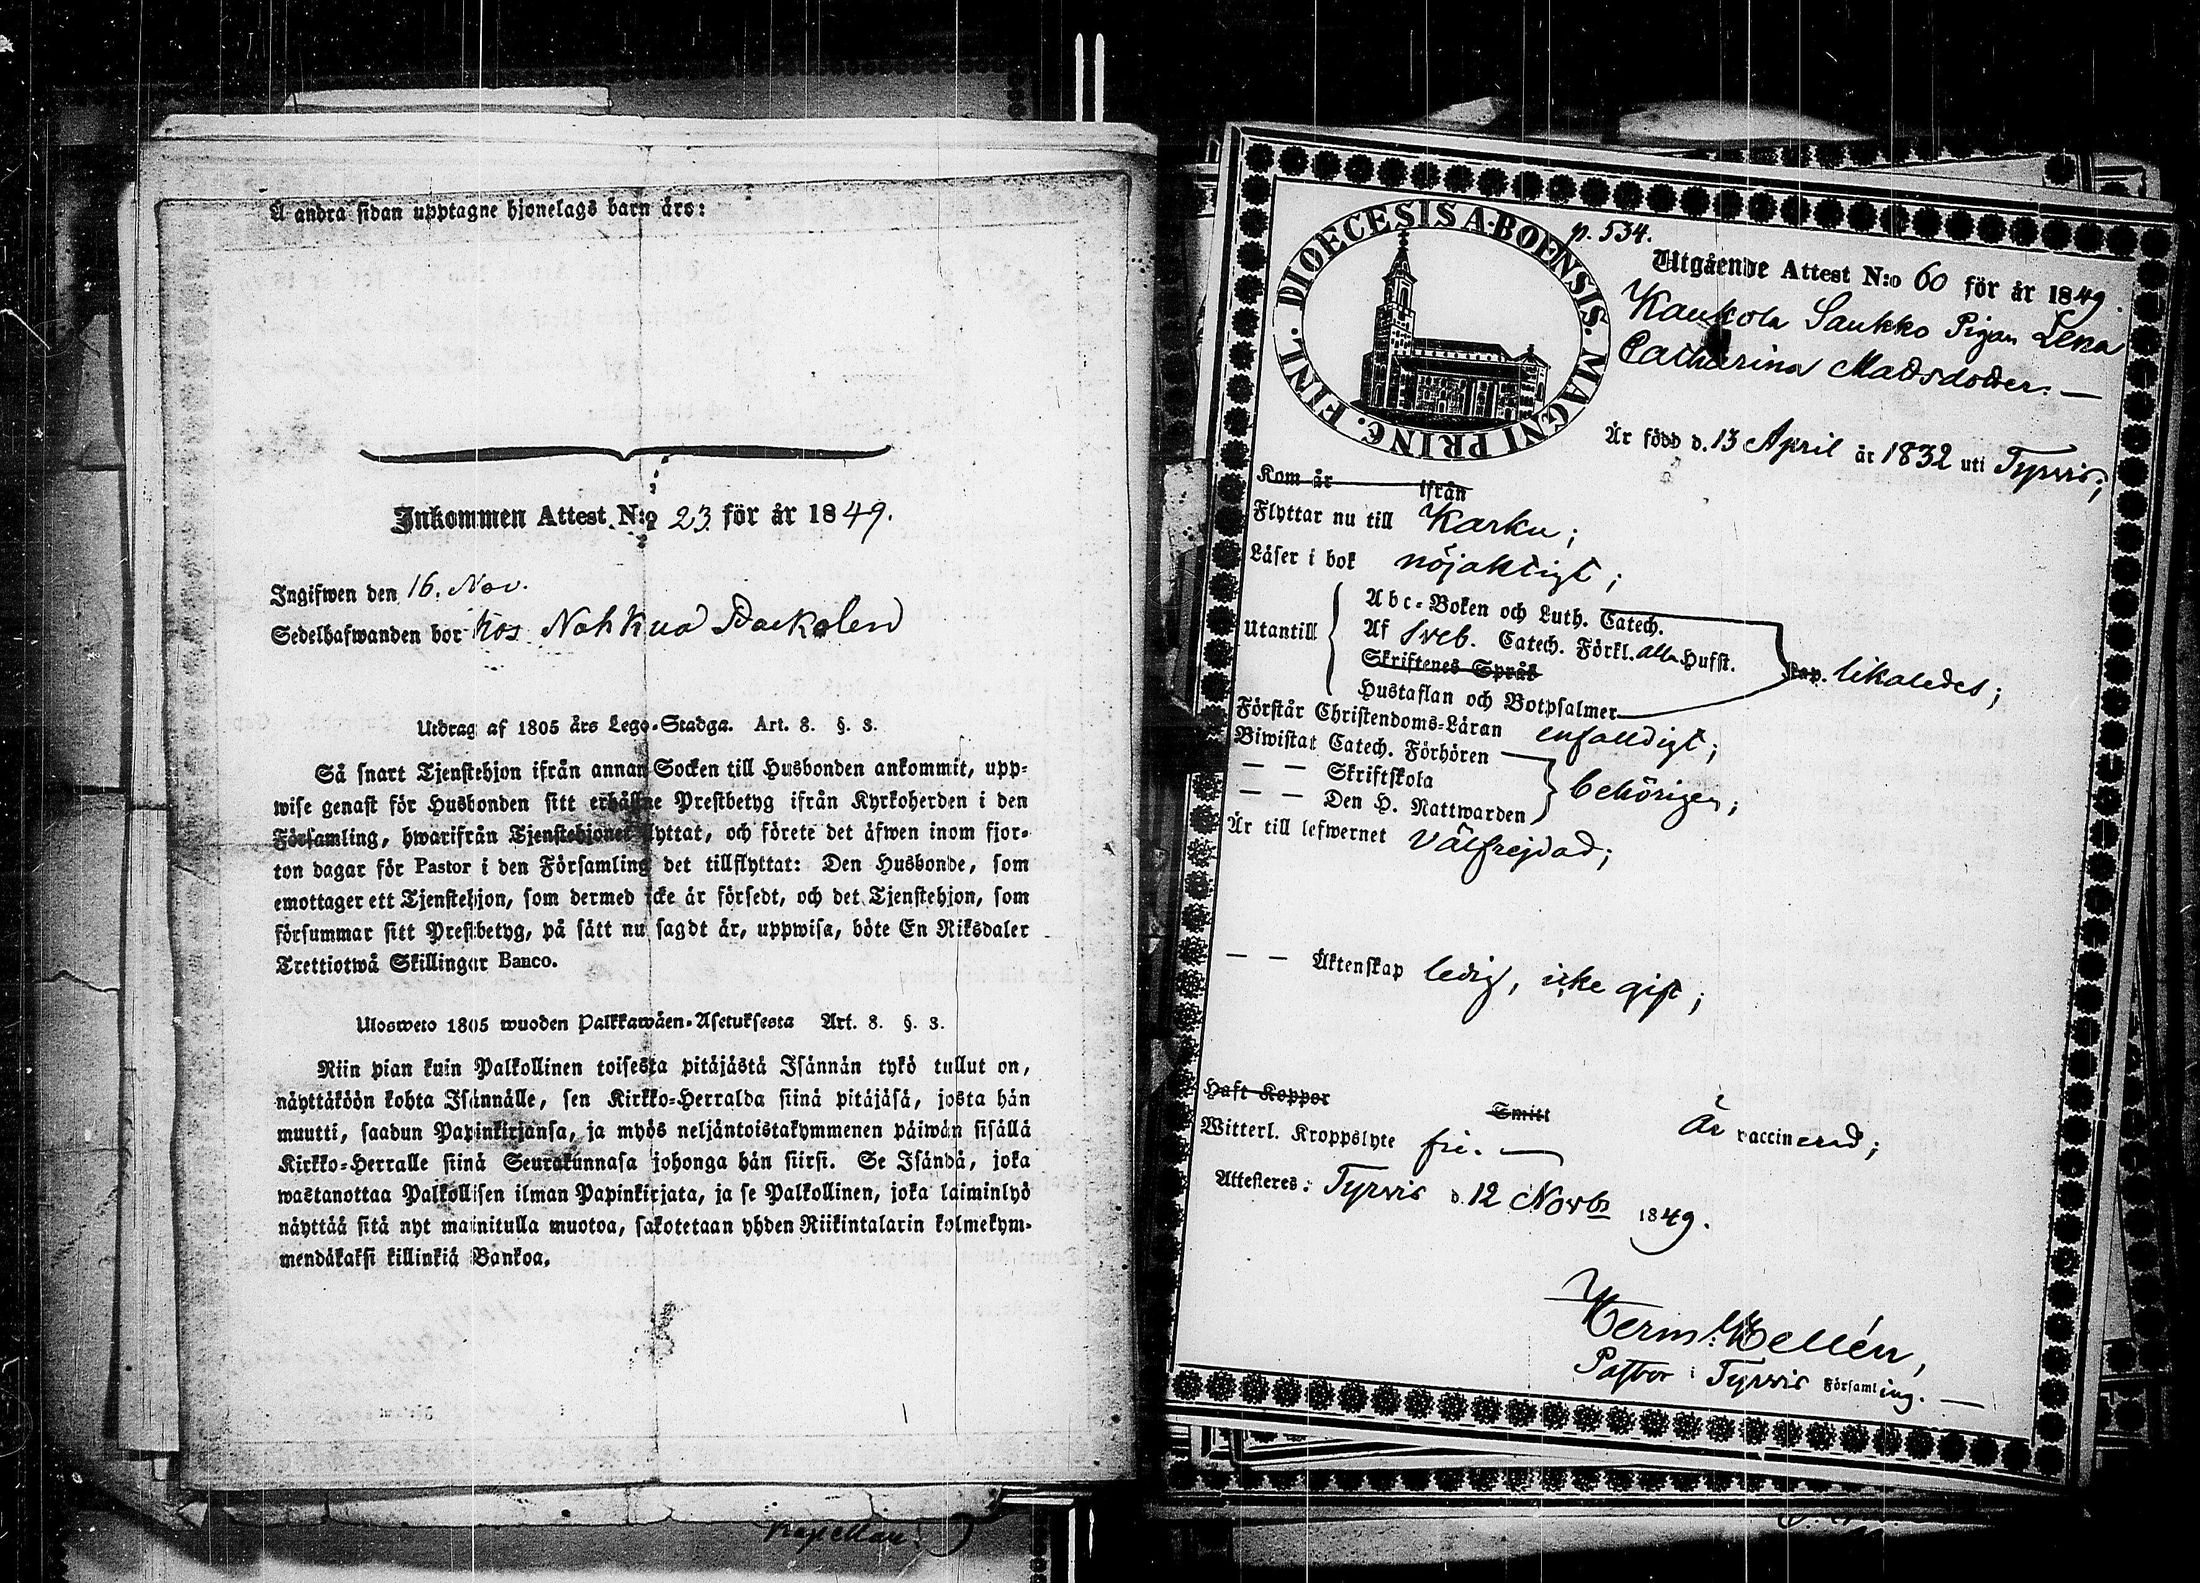 Å andra sidan upptagne hjonelags barn äro:
Inkommen Attest N:o 23 för år 1849.
Ingifwen den 16. Nov.
Sedelhafwanden bor hos Nohkua
Utdrag af 1805 års Lego-Stadga. Art. 8. §. 3.
Så snart Tjenstehjon ifrån annan Socken till Husbonden ankommit, upp-
wise genast för Husbonden sitt erhållne Prestbetyg ifrån Kyrkoherden i den
Församling, hwarifrån Tjenstehjonet flyttat, och förete det äfwen inom fjor-
ton dagar för Pastor i den Församling det tillflyttat: Den Husbonde, som
emottager ett Tjenstehjon, som dermed icke är försedt, och det Tjenstehjon, som
försummar sitt Prestbetyg, på sätt nu sagdt är, uppwisa, böte En Riksdaler
Trettiotwå Skillingar Banco.
Ulosweto 1805 wuoden Palkkawäen-Asetuksesta Art. 8. §. 3.
Niin pian kuin Palkollinen toisesta pitäjästä Isännän tykö tullut on,
näyttäköön kohta Isännälle, sen Kirkko-Herralda siinä pitäjäsä, josta hän
muutti, saadun Papinkirjansa, ja myös neljäntoistakymmenen päiwän sisällä
Kirkko-Herralle siinä Seurakunnasa johonga hän siirsi. Se Isändä, joka
wastanottaa Palkollisen ilman Papinkirjata, ja se Palkollinen, joka laiminlyö
näyttää sitä nyt mainitulla muotoa, sakotetaan yhden Riikintalarin kolmekym-
mendäkaksi killinkiä Bankoa.
Kapellan.
DIOECESIS ABOENSIS. MAGNI PRINC. FINL.
p. 534.
Utgående Attest N:o 60 för år 1849.
Kaukola Saukko Pigan Lena
Catharina Matsdotter. —
Är född d. 13 April år 1832 uti Tyrvis;
Kom år ifrån
Flyttar nu till Karku;
Läser i bok nöjaktigt;
Utantill
Abc-Boken och Luth. Catech.
Af Sveb. Catech. Förkl. alla Hufst.
Skriftenes Språk
Hustaflan och Botpsalmer
likaledes;
Förstår Christendoms-Läran enfaldigt;
Biwistat Catech. Förhören
— — Skriftskola
— — Den H. Nattwarden
behörigen;
Är till lefwernet välfrejdad;
— — Äktenskap ledig, icke gift;
Haft Koppor Smitt Är vaccinerad;
Witterl. Kroppslyte fri. —
Attesteres: Tyrvis d. 12 Novbr 1849.
Herm: Hellén,
Pastor i Tyrvis Församling. —